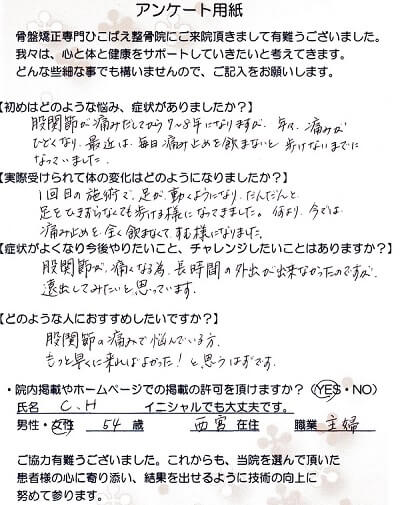 アンケート用紙
骨盤矯正専門ひこばえ整骨院にご来院頂きまして有難うございました。
我々は、心と体と健康をサポートしていきたいと考えてきます。
どんな些細な事でも構いませんので、ご記入をお願いします。
【初めはどのような悩み、症状がありましたか？】
股関節が痛みだしてから7~8年になりますが、年々、痛みが
ひどくなり、最近は、毎日痛み止めを飲まないと歩けないまでに
なっていました。
【実際受けられて体の変化はどのようになりましたか？】
1回目の施術で、足が、動くようになり、だんだんと
足をひきずらなくても歩ける様になってきました。何より、今では、
痛み止めを全く飲まなくてすむ様になりました。
【症状がよくなり今後やりたいこと、チャレンジしたいことはありますか？】
股関節が、痛くなる為、長時間の外出が出来なかったのですが、
遠出してみたいと思っています。
【どのような人におすすめしたいですか？】
股関節の痛みで悩んでいる方、
もっと早くに来ればよかった！と、思うはずです。
・院内掲載やホームページでの掲載の許可を頂けますか？（YES・NO）
氏名 C.H イニシャルでも大丈夫です。
男性・女性 54 歳 西宮 在住 職業 主婦
ご協力有難うございました。これからも、当院を選んで頂いた
患者様の心に寄り添い、結果を出せるように技術の向上に
努めて参ります。